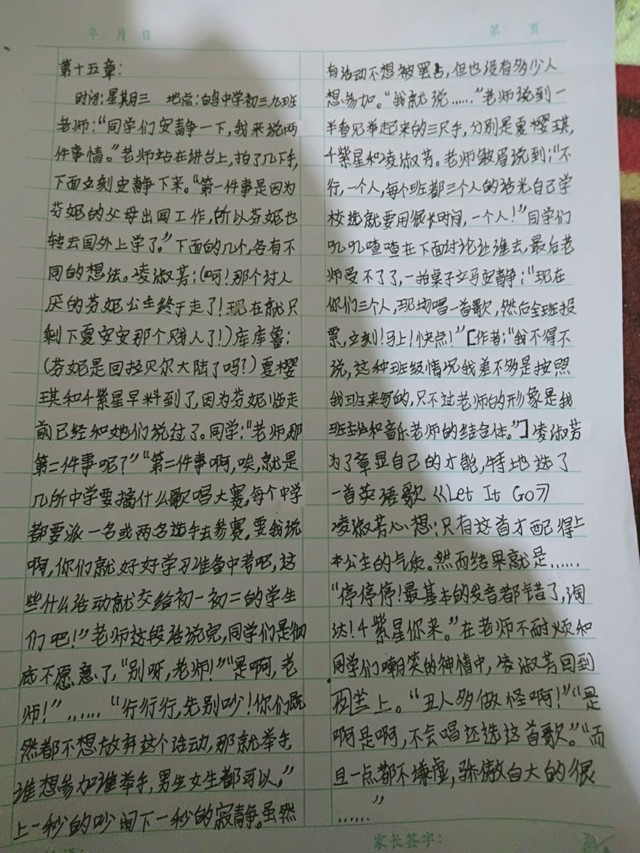 年 月 日
第 页
第十五章:
时间:星期三 地点:白鸟中学初三九班
老师:“同学们安静一下,我来说两
件事情。”老师站在讲台上,拍了几下手,
下面立刻安静下来。“第一件事是因为
芬妮的父母出国工作,所以芬妮也
转去国外上学了。”下面的几个,各有不
同的想法。凌淑芳:(呵!那个讨人
厌的芬妮公主终于走了!现在就只
剩下夏安安那个贱人了!)库库鲁:
(芬妮是回拉贝尔大陆了吗?)夏樱
琪和千紫星早料到了,因为芬妮临走
前已经和她们说过了。同学:“老师,那
第二件事呢?”“第二件事啊,唉,就是
几所中学要搞什么歌唱大赛,每个中学
都要派一名或两名选手去参赛。要我说
啊,你们就好好学习准备中考吧,这
些什么活动就交给初一初二的学生
们吧!”老师这段话说完,同学们是彻
底不愿意了,“别呀,老师!”“是啊,老
师!”……“行行行,先别吵!你们既
然都不想放弃这个活动,那就举手,
谁想参加谁举手,男生女生都可以。”
上一秒的吵闹下一秒的寂静。虽然
有活动不想被罢占,但也没有多少人
想参加。“我就说……”老师说到一
半看见举起来的三只手,分别是夏樱琪,
千紫星和凌淑芳。老师皱眉说到:“不
行,一个人,每个班都三个人的话光自己学
校选就要用很长时间,一个人!”同学们
叽叽喳喳在下面讨论让谁去,最后老
师受不了了,一拍桌子立马安静:“现在
你们三个人,现场唱一首歌,然后全班投
票,立刻!马上!快点!”[作者:“我不得不
说,这种班级情况我差不多是按照
我班来写的,只不过老师的形象是我
班主任和音乐老师的结合体。”]凌淑芳
为了章显自己的才能,特地选了
一首英语歌《Let It Go》
凌淑芳心想:只有这首才配得上
本公主的气质。然而结果就是……
“停停停!最基本的发音都错了,淘
汰!千紫星你来。”在老师不耐烦和
同学们嘲笑的神情中,凌淑芳回到
位置上。“丑人多做怪啊!”“是
啊是啊,不会唱还选这首歌。”“而
且一点都不谦虚,骄傲自大的很
……”
家长签字: